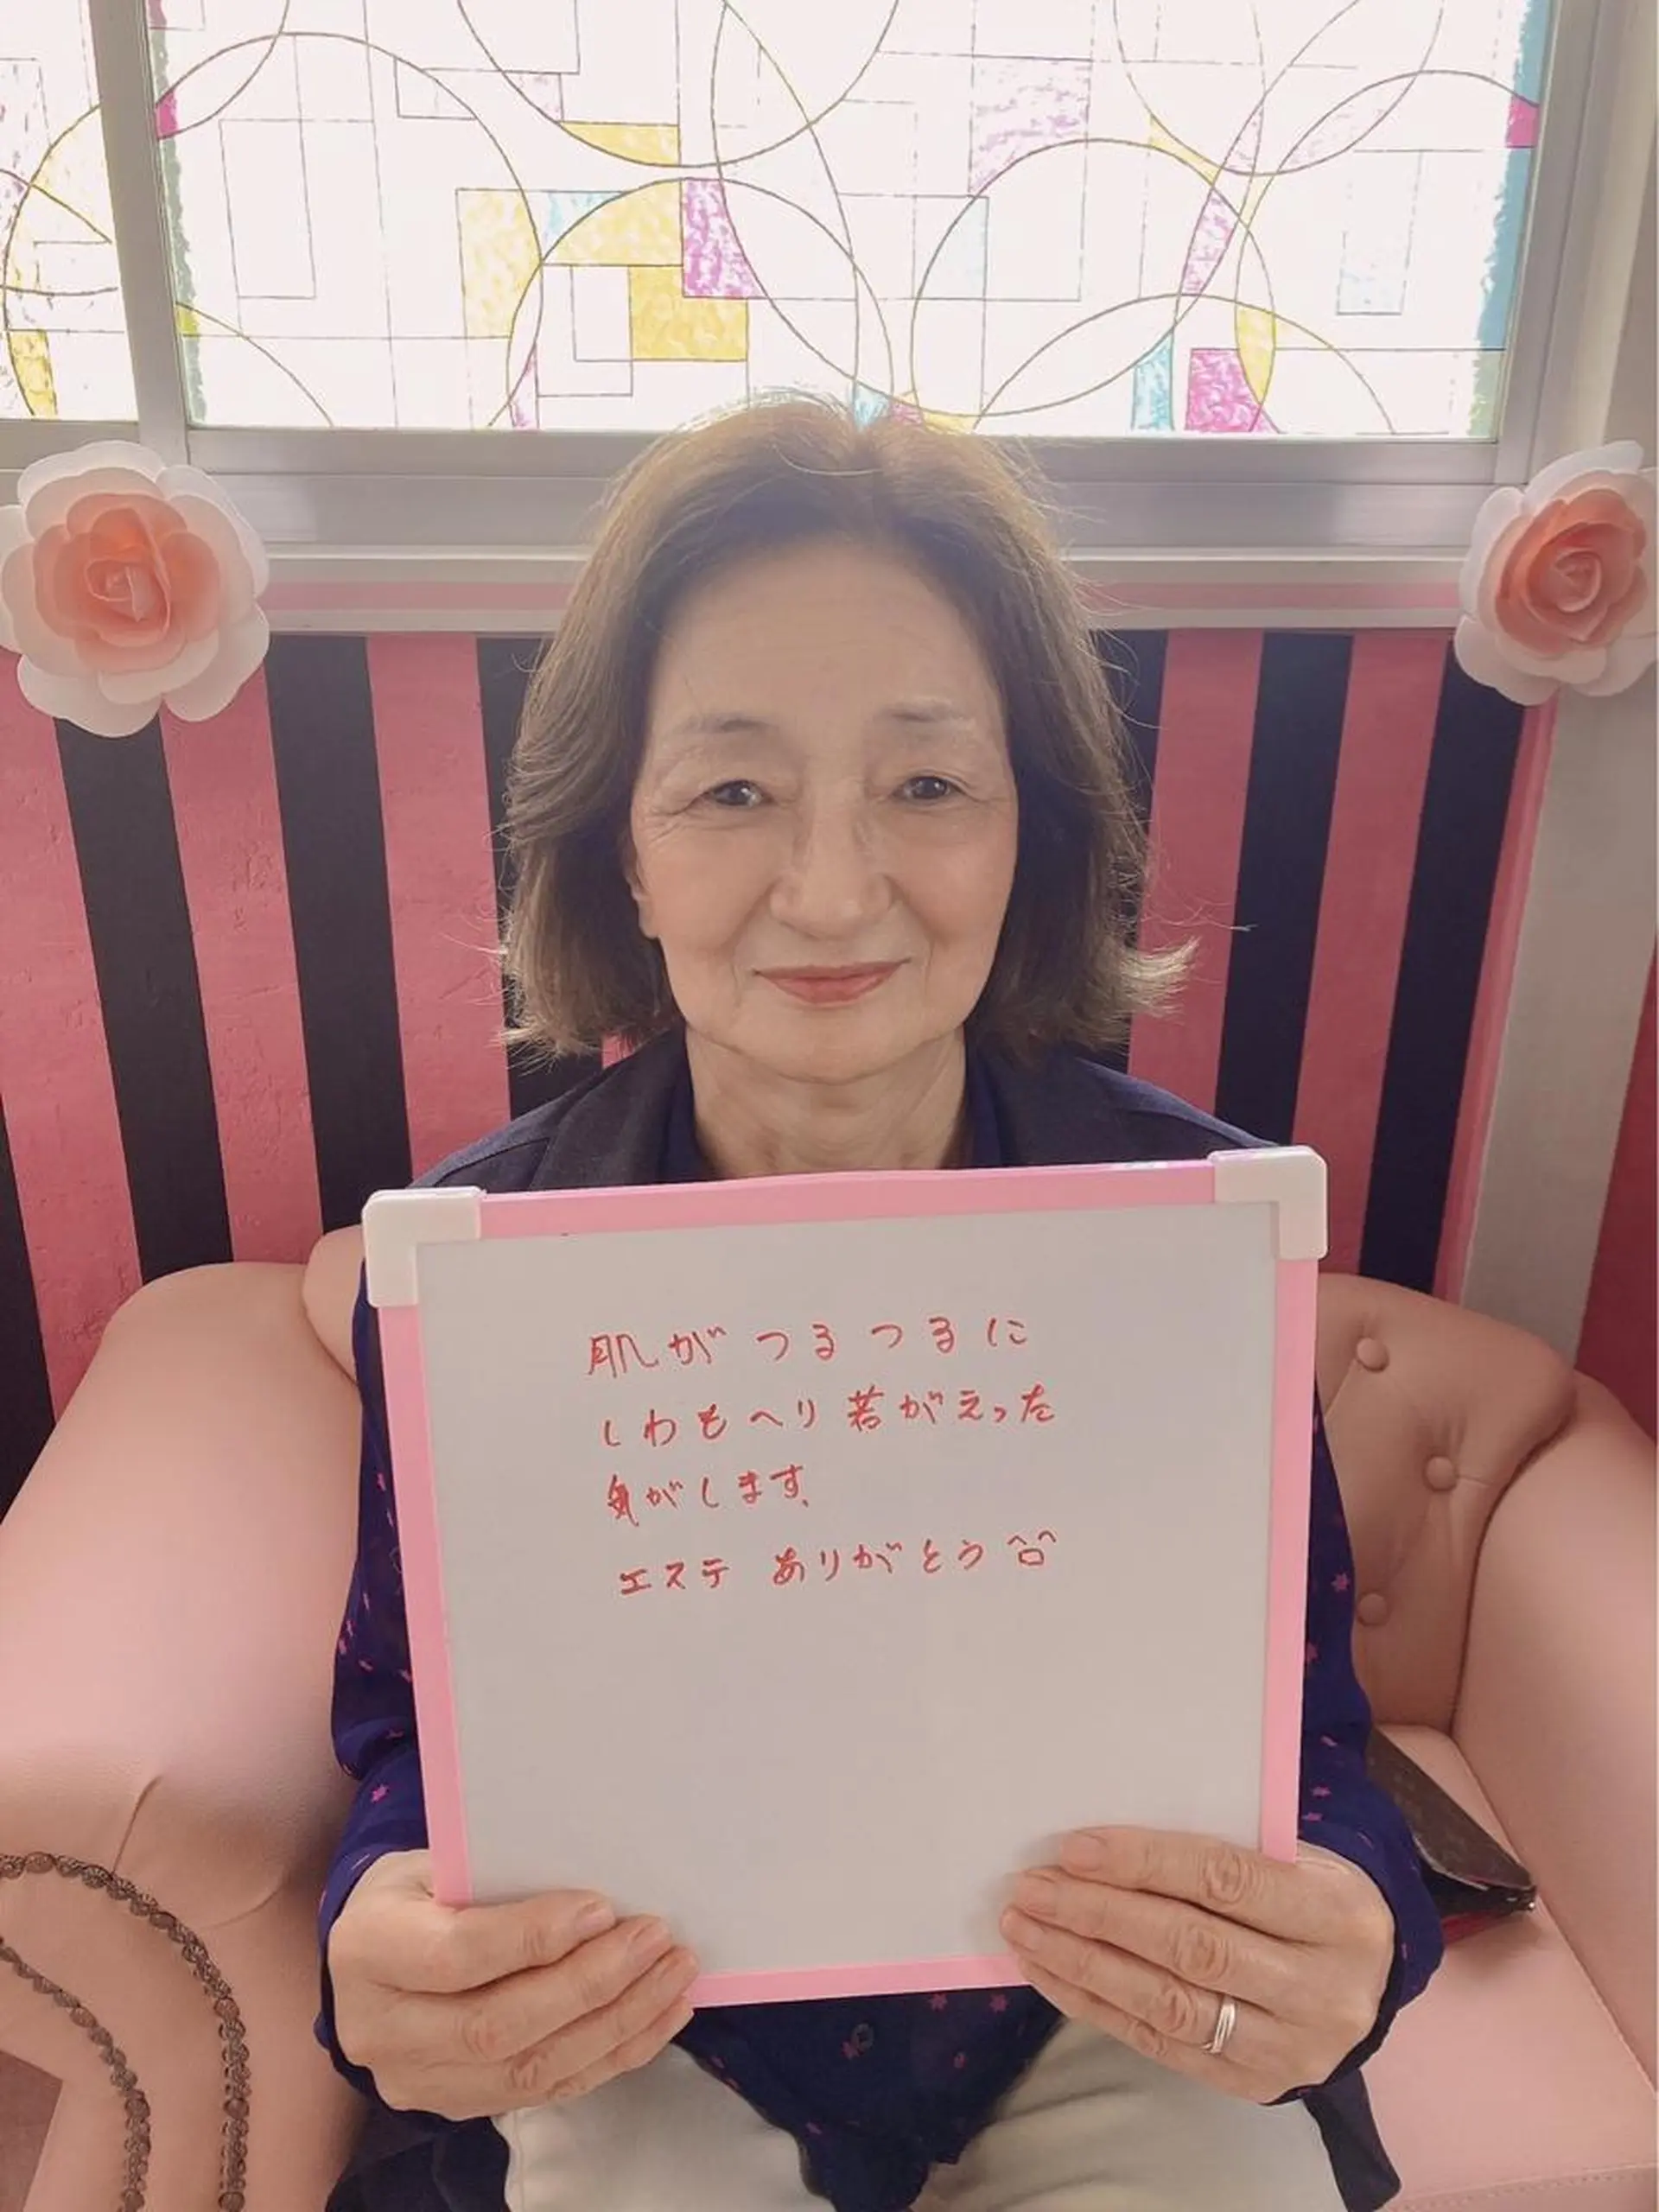 肌がつるつるに
しわもへり若がえった
気がします。
エステ ありがとう ^o^